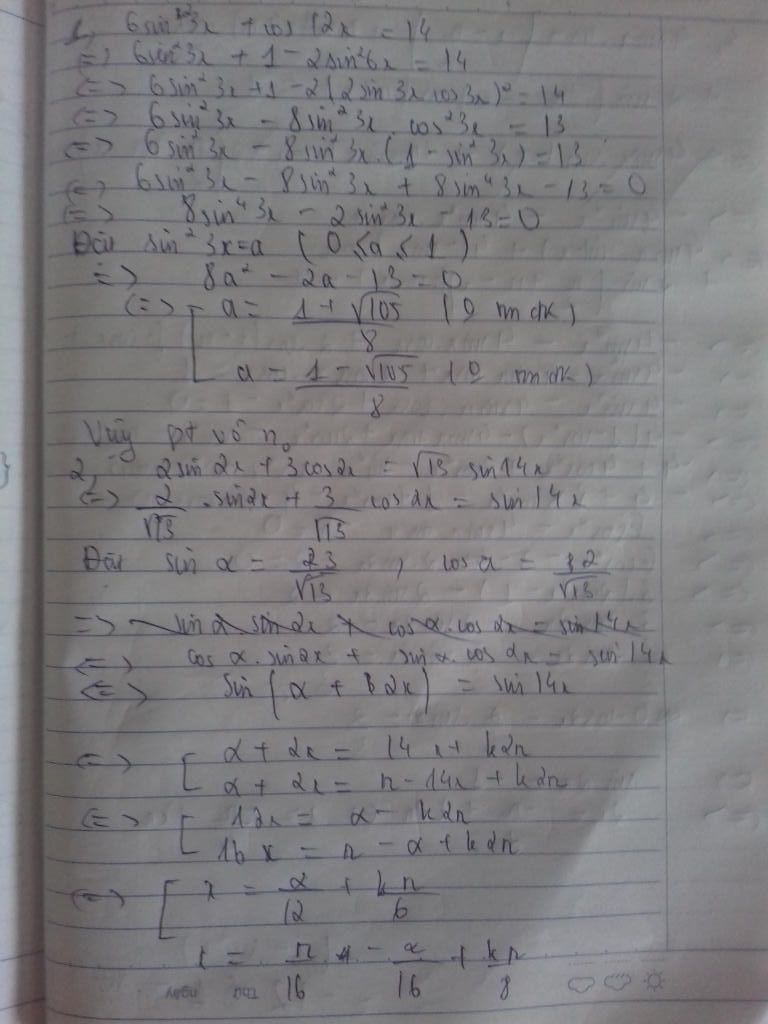 1, 6sin²3x + cos12x = 14
<=> 6sin²3x + 1 - 2sin²6x = 14
<=> 6sin²3x + 1 - 2(2sin3x cos3x)² = 14
<=> 6sin²3x - 8sin²3x . cos²3x = 13
<=> 6sin²3x - 8sin²3x.(1 - sin²3x) = 13
<=> 6sin²3x - 8sin²3x + 8sin⁴3x - 13 = 0
<=> 8sin⁴3x - 2sin²3x - 13 = 0
Đặt sin²3x = a (0 ≤ a ≤ 1)
=> 8a² - 2a - 13 = 0
<=> [ a = (1 + √105)/8 (0 tm đk)
a = (1 - √105)/8 (0 tm đk)
Vậy pt vô n₀
2, 2sin2x + 3cos2x = √13 sin14x
<=> 2/√13 . sin2x + 3/√13 cos2x = sin14x
Đặt sin α = 3/√13 , cos α = 2/√13
=> sin α sin2x + cos α . cos2x = sin14x
<=> cos α . sin2x + sin α . cos2x = sin14x
<=> sin(α + 2x) = sin14x
<=> [ α + 2x = 14x + k2π
α + 2x = π - 14x + k2π
<=> [ 12x = α - k2π
16x = π - α + k2π
<=> [ x = α/12 + kπ/6
x = π/16 - α/16 + kπ/8